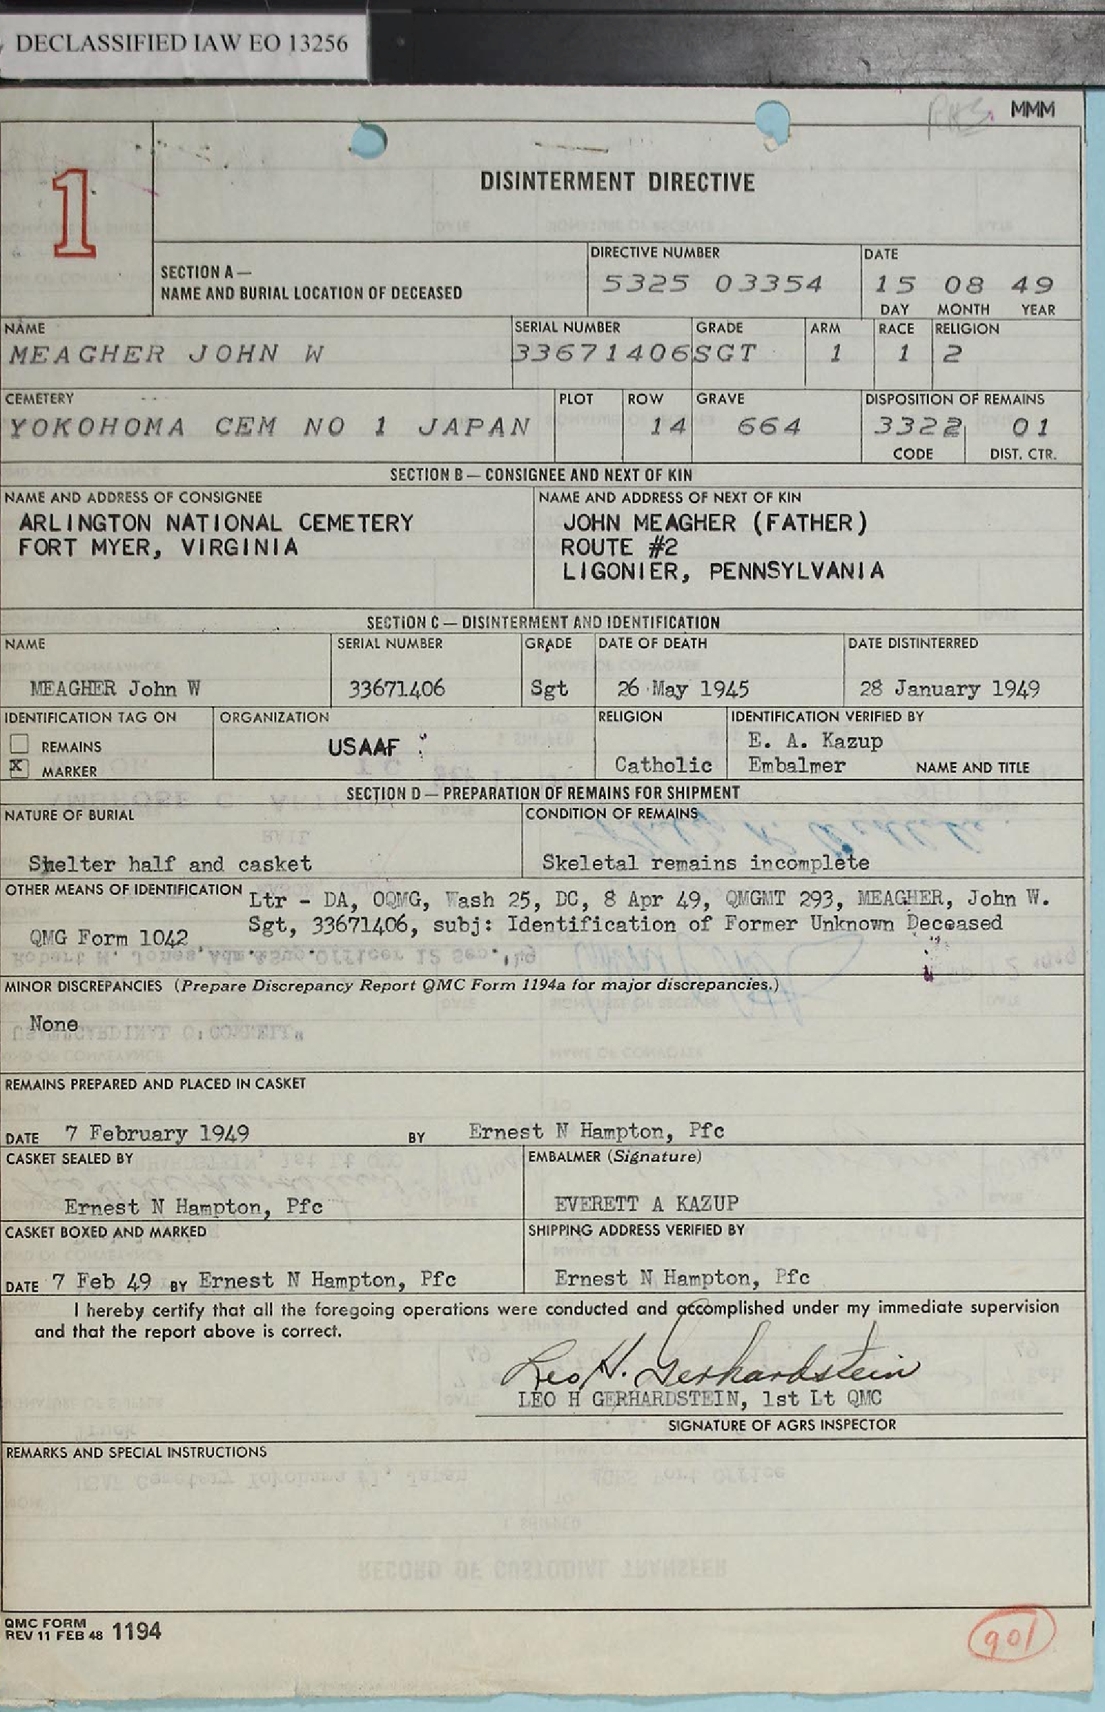 DECLASSIFIED IAW EO 13256
MMM
1
DISINTERMENT DIRECTIVE
SECTION A —
NAME AND BURIAL LOCATION OF DECEASED
DIRECTIVE NUMBER
5325 03354
DATE
15 08 49
DAY MONTH YEAR
NAME
MEAGHER JOHN W
SERIAL NUMBER
33671406
GRADE
SGT
ARM
1
RACE
1
RELIGION
2
CEMETERY
YOKOHOMA CEM NO 1 JAPAN
PLOT
ROW
14
GRAVE
664
DISPOSITION OF REMAINS
3322 01
CODE DIST. CTR.
SECTION B — CONSIGNEE AND NEXT OF KIN
NAME AND ADDRESS OF CONSIGNEE
ARLINGTON NATIONAL CEMETERY
FORT MYER, VIRGINIA
NAME AND ADDRESS OF NEXT OF KIN
JOHN MEAGHER (FATHER)
ROUTE #2
LIGONIER, PENNSYLVANIA
SECTION C — DISINTERMENT AND IDENTIFICATION
NAME
MEAGHER John W
SERIAL NUMBER
33671406
GRADE
Sgt
DATE OF DEATH
26 May 1945
DATE DISTINTERRED
28 January 1949
IDENTIFICATION TAG ON
REMAINS
X MARKER
ORGANIZATION
USAAF
RELIGION
Catholic
IDENTIFICATION VERIFIED BY
E. A. Kazup
Embalmer NAME AND TITLE
SECTION D — PREPARATION OF REMAINS FOR SHIPMENT
NATURE OF BURIAL
Shelter half and casket
CONDITION OF REMAINS
Skeletal remains incomplete
OTHER MEANS OF IDENTIFICATION
QMG Form 1042
Ltr - DA, OQMG, Wash 25, DC, 8 Apr 49, QMGMT 293, MEAGHER, John W.
Sgt, 33671406, subj: Identification of Former Unknown Deceased
MINOR DISCREPANCIES (Prepare Discrepancy Report QMC Form 1194a for major discrepancies.)
None
REMAINS PREPARED AND PLACED IN CASKET
DATE 7 February 1949 BY Ernest N Hampton, Pfc
CASKET SEALED BY
Ernest N Hampton, Pfc
EMBALMER (Signature)
EVERETT A KAZUP
CASKET BOXED AND MARKED
DATE 7 Feb 49 BY Ernest N Hampton, Pfc
SHIPPING ADDRESS VERIFIED BY
Ernest N Hampton, Pfc
I hereby certify that all the foregoing operations were conducted and accomplished under my immediate supervision
and that the report above is correct.
Leo H. Gerhardstein
LEO H GERHARDSTEIN, 1st Lt QMC
SIGNATURE OF AGRS INSPECTOR
REMARKS AND SPECIAL INSTRUCTIONS
QMC FORM
REV 11 FEB 48 1194
901